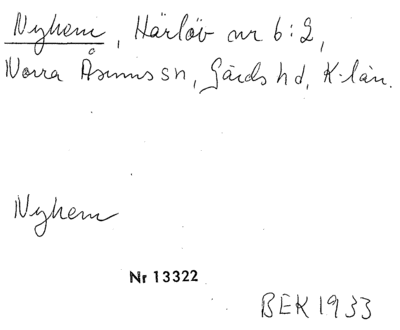 Nyhem, Härlöv nr 6:2,
Norra Åsums sn, Gärds hd, K-län.
Nyhem
Nr 13322
BEK 1933